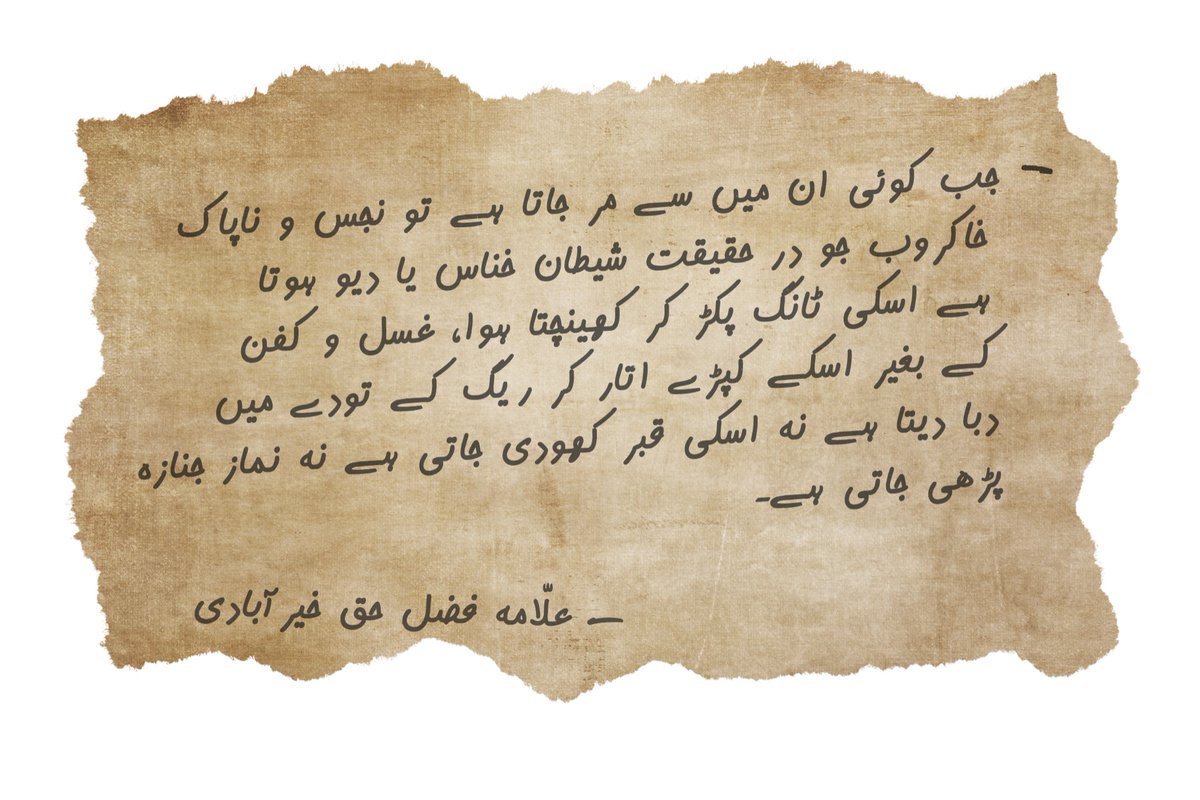 — جب کوئی ان میں سے مر جاتا ہے تو نجس و ناپاک
خاکروب جو در حقیقت شیطان خناس یا دیو ہوتا
ہے اسکی ٹانگ پکڑ کر کھینچتا ہوا، غسل و کفن
کے بغیر اسکے کپڑے اتار کر ریگ کے تودے میں
دبا دیتا ہے نہ اسکی قبر کھودی جاتی ہے نہ نماز جنازہ
پڑھی جاتی ہے۔
— علّامہ فضل حق خیر آبادی